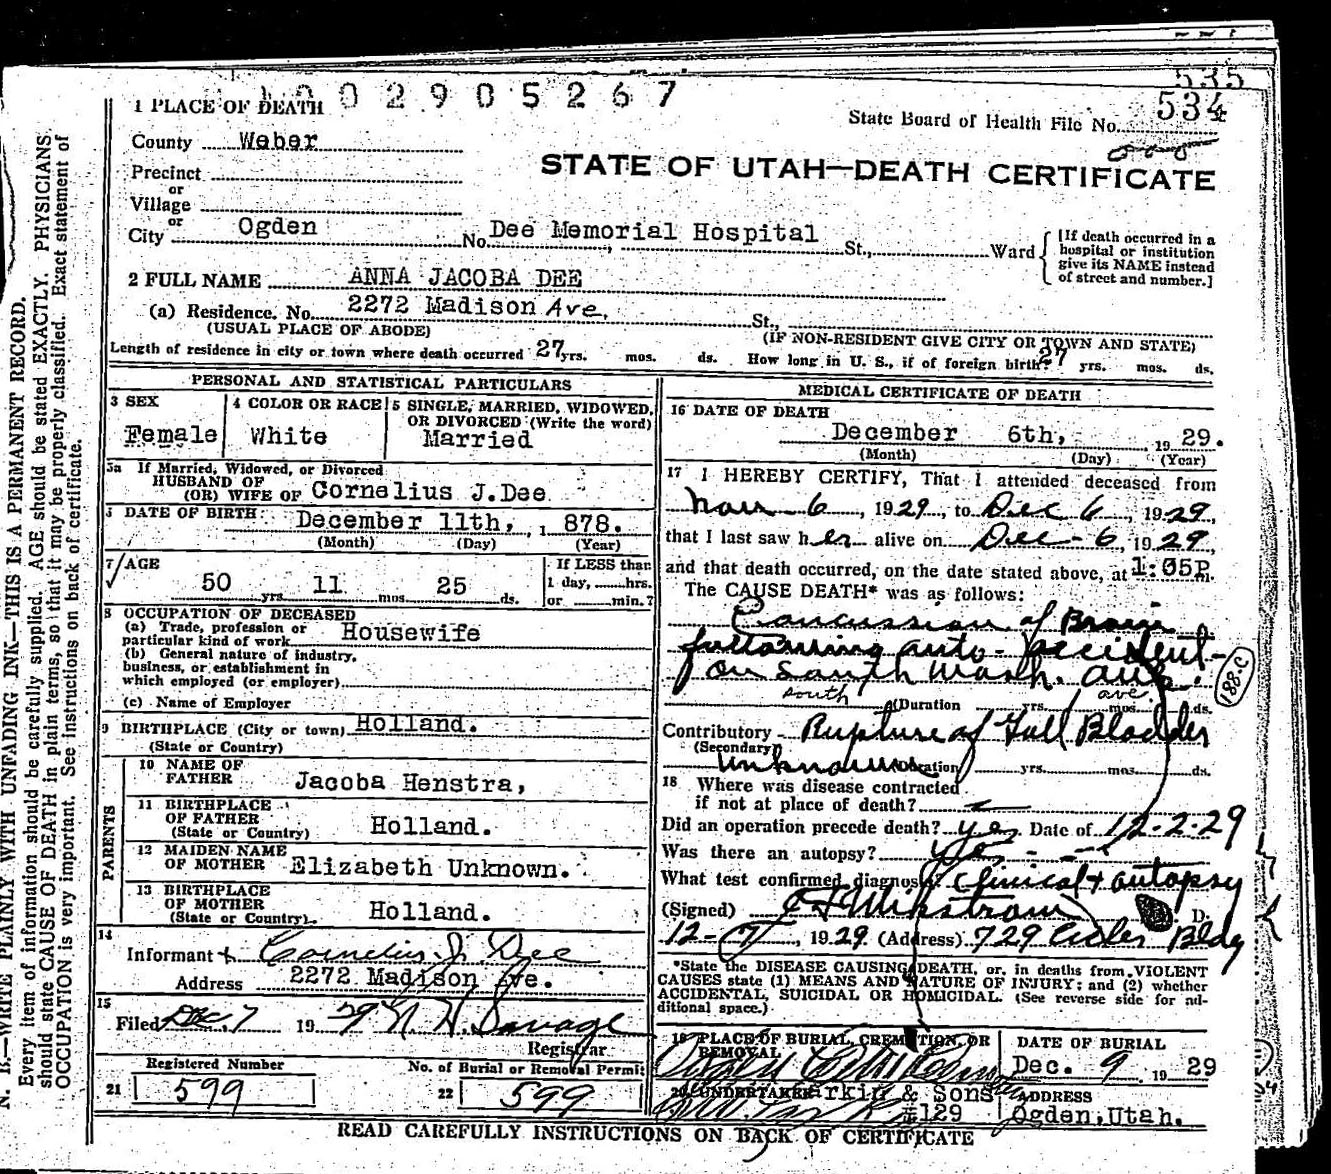 535
0 0 2 9 0 5 2 6 7
534
1 PLACE OF DEATH
State Board of Health File No.
County Weber
STATE OF UTAH—DEATH CERTIFICATE
Precinct
or
Village
or
City Ogden No. Dee Memorial Hospital St., Ward
[If death occurred in a hospital or institution give its NAME instead of street and number.]
2 FULL NAME ANNA JACOBA DEE
(a) Residence. No. 2272 Madison Ave. St.,
(USUAL PLACE OF ABODE) (IF NON-RESIDENT GIVE CITY OR TOWN AND STATE)
Length of residence in city or town where death occurred 27 yrs. mos. ds. How long in U. S., if of foreign birth? 27 yrs. mos. ds.
PERSONAL AND STATISTICAL PARTICULARS
3 SEX
Female
4 COLOR OR RACE
White
5 SINGLE, MARRIED, WIDOWED, OR DIVORCED (Write the word)
Married
5a If Married, Widowed, or Divorced
HUSBAND OF
(OR) WIFE OF Cornelius J. Dee
DATE OF BIRTH: December 11th, 1,878.
(Month) (Day) (Year)
7 AGE
50 yrs 11 mos. 25 ds.
If LESS than
1 day, hrs.
or min.?
8 OCCUPATION OF DECEASED
(a) Trade, profession or
particular kind of work Housewife
(b) General nature of industry,
business, or establishment in
which employed (or employer)
(c) Name of Employer
9 BIRTHPLACE (City or town) Holland.
(State or Country)
PARENTS
10 NAME OF
FATHER Jacoba Henstra,
11 BIRTHPLACE
OF FATHER Holland.
(State or Country)
12 MAIDEN NAME
OF MOTHER Elizabeth Unknown.
13 BIRTHPLACE
OF MOTHER Holland.
(State or Country)
14
Informant Cornelius J. Dee
Address 2272 Madison Ave.
15
Filed Dec 7 1929 Savage
Registrar
Registered Number
21 599
No. of Burial or Removal Permit
22 599
MEDICAL CERTIFICATE OF DEATH
16 DATE OF DEATH
December 6th, 1929.
(Month) (Day) (Year)
17 I HEREBY CERTIFY, That I attended deceased from
Nov 6, 1929, to Dec 6, 1929,
that I last saw her alive on Dec-6, 1929,
and that death occurred, on the date stated above, at 1:05P m.
The CAUSE DEATH* was as follows:
Concussion of Brain
following auto-accident-
on South Wash. Ave.
south ave.
(Duration yrs. mos. ds.
188-C
Contributory Rupture of Gall Bladder
(Secondary)
Unknown (Duration) yrs. mos. ds.
18 Where was disease contracted
if not at place of death?
Did an operation precede death? yes Date of 12-2-29
Was there an autopsy? Yes
What test confirmed diagnosis? Clinical + autopsy
(Signed) D.
12-7, 1929 (Address) 729 Bldg
*State the DISEASE CAUSING DEATH, or, in deaths from VIOLENT
CAUSES state (1) MEANS AND NATURE OF INJURY: and (2) whether
ACCIDENTAL, SUICIDAL OR HOMICIDAL. (See reverse side for ad-
ditional space.)
19 PLACE OF BURIAL, CREMATION, OR
REMOVAL
DATE OF BURIAL
Dec. 9 1929
20 UNDERTAKER Larkin & Sons
#129
ADDRESS
Ogden, Utah.
READ CAREFULLY INSTRUCTIONS ON BACK OF CERTIFICATE
N. B.—WRITE PLAINLY WITH UNFADING INK—THIS IS A PERMANENT RECORD.
Every item of information should be carefully supplied. AGE should be stated EXACTLY. PHYSICIANS
should state CAUSE OF DEATH in plain terms, so that it may be properly classified. Exact statement of
OCCUPATION is very important. See instructions on back of certificate.